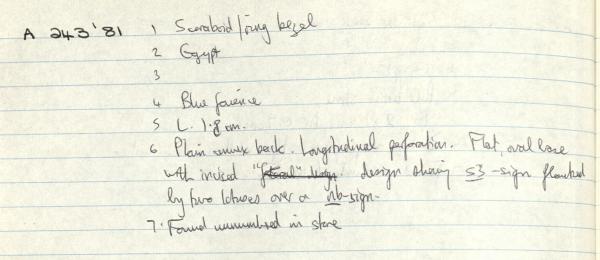 A 243'81 1 Scaraboid/ring bezel
2 Egypt
3
4 Blue faience
5 L. 1.8 cm.
6 Plain convex back. Longitudinal perforation. Flat, oval base
with incised design showing s3-sign flanked
by two lotuses over a nb-sign.
7. Found unnumbered in store